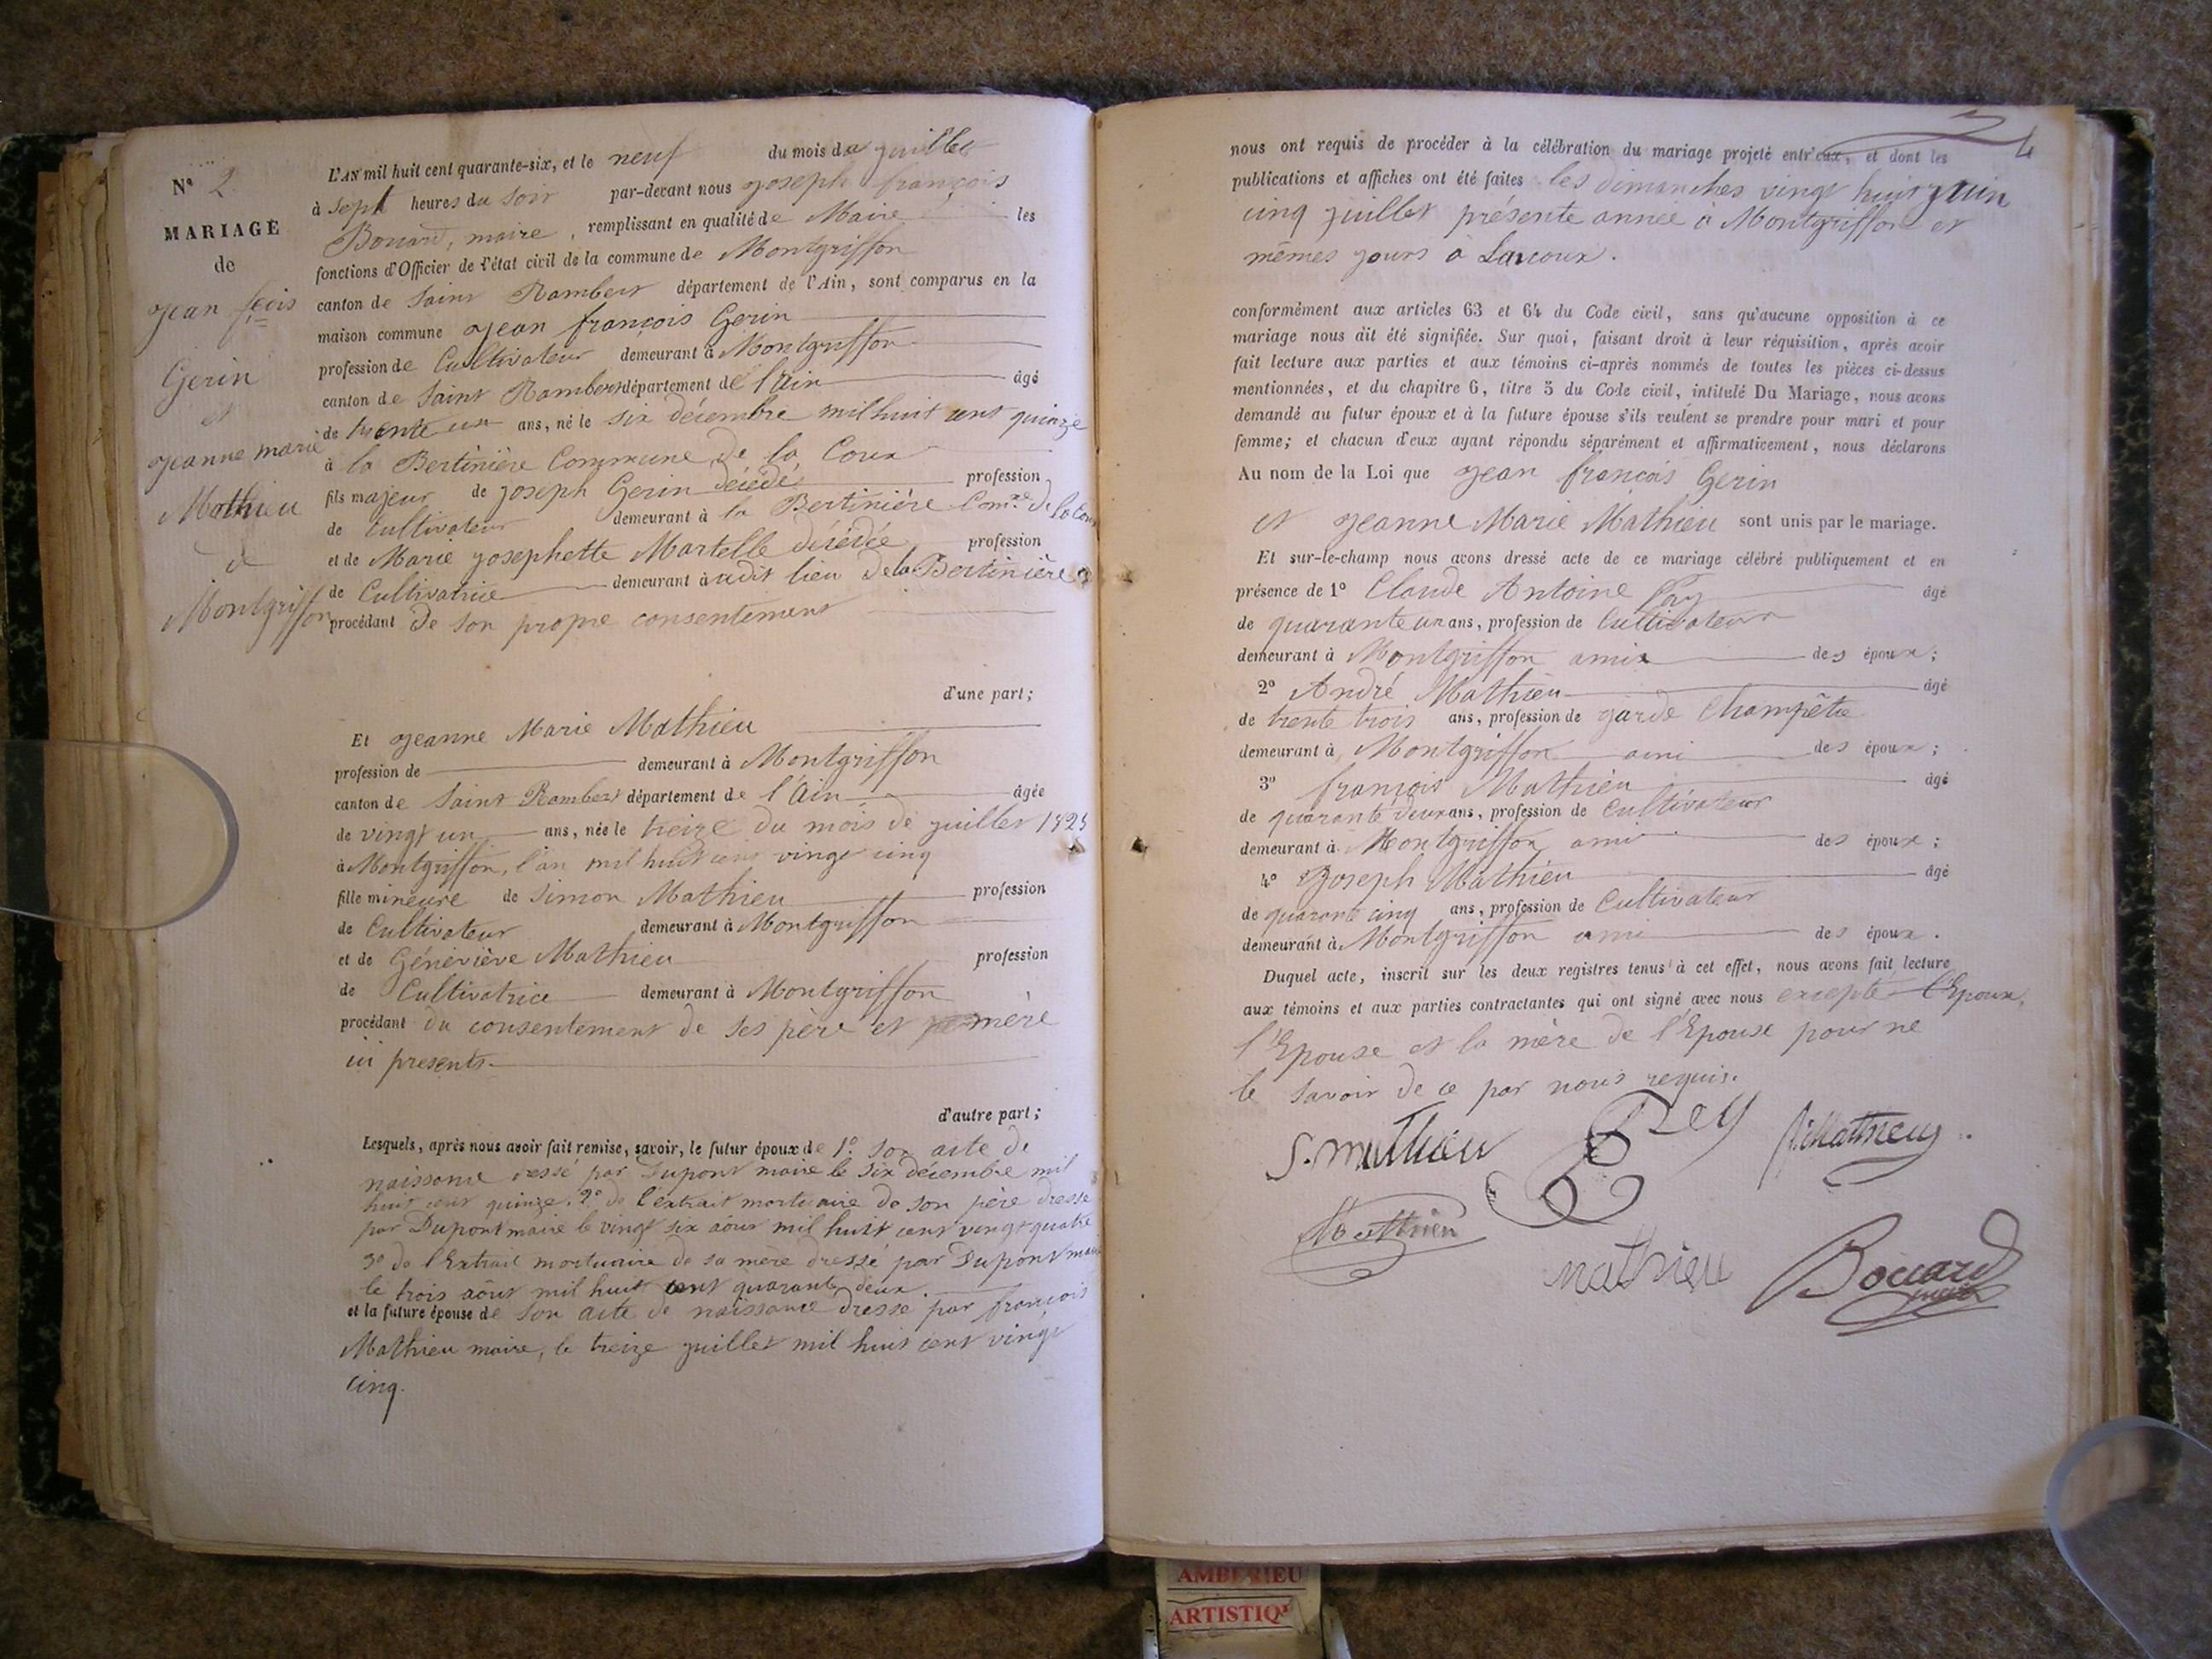 N° 2
MARIAGE
de
Jean fçois
Gerin
et
Jeanne marie
Mathieu
de
Montgriffon
L'AN mil huit cent quarante-six, et le neuf du mois de juillet
à sept heures du soir par-devant nous joseph françois
Bouard, maire, remplissant en qualité de Maire les
fonctions d'Officier de l'état civil de la commune de Montgriffon
canton de Saint Rambert département de l'Ain, sont comparus en la
maison commune Jean françois Gerin
profession de Cultivateur demeurant à Montgriffon
canton de Saint Rambert département de l'Ain âgé
de trente un ans, né le six décembre mil huit cent quinze
à la Bertinière Commune de la Coux
fils majeur de joseph Gerin décédé profession
de Cultivateur demeurant à la Bertinière Com.ne de la Coux
et de Marie josephette Martelle décédée profession
de Cultivatrice demeurant à udit lieu de la Bertinière
procédant de son propre consentement
d'une part;
Et Jeanne Marie Mathieu
profession de demeurant à Montgriffon
canton de Saint Rambert département de l'Ain âgée
de vingt un ans, née le treize du mois de juillet 1825
à Montgriffon, l'an mil huit cent vingt cinq
fille mineure de Simon Mathieu profession
de Cultivateur demeurant à Montgriffon
et de Généviève Mathieu profession
de Cultivatrice demeurant à Montgriffon
procédant du consentement de ses père et mère
ici presents.
d'autre part;
Lesquels, après nous avoir fait remise, savoir, le futur époux de 1° son acte de
naissance dressé par Dupont maire le six décembre mil
huit cent quinze. 2° de l'extrait mortuaire de son père dressé
par Dupont maire le vingt six août mil huit cent vingt quatre
3° de l'Extrait mortuaire de sa mère dressé par Dupont maire
le trois août mil huit cent quarante deux.
et la future épouse de son acte de naissance dressé par françois
Mathieu maire, le treize juillet mil huit cent vingt
cinq.
4
nous ont requis de procéder à la célébration du mariage projeté entr'eux, et dont les
publications et affiches ont été faites les dimanches vingt huit juin
cinq juillet présente année à Montgriffon et
mêmes jours à Lacoux.
conformément aux articles 63 et 64 du Code civil, sans qu'aucune opposition à ce
mariage nous ait été signifiée. Sur quoi, faisant droit à leur réquisition, après avoir
fait lecture aux parties et aux témoins ci-après nommés de toutes les pièces ci-dessus
mentionnées, et du chapitre 6, titre 5 du Code civil, intitulé Du Mariage, nous avons
demandé au futur époux et à la future épouse s'ils veulent se prendre pour mari et pour
femme; et chacun d'eux ayant répondu séparément et affirmativement, nous déclarons
Au nom de la Loi que Jean françois Gerin
et Jeanne Marie Mathieu sont unis par le mariage.
Et sur-le-champ nous avons dressé acte de ce mariage célébré publiquement et en
présence de 1° Claude Antoine Rey âgé
de quarante un ans, profession de Cultivateur
demeurant à Montgriffon amis des époux;
2° André Mathieu âgé
de trente trois ans, profession de garde Champêtre
demeurant à Montgriffon ami des époux;
3° françois Mathieu âgé
de quarante deux ans, profession de Cultivateur
demeurant à Montgriffon ami des époux;
4° Joseph Mathieu âgé
de quarante cinq ans, profession de Cultivateur
demeurant à Montgriffon ami des époux.
Duquel acte, inscrit sur les deux registres tenus à cet effet, nous avons fait lecture
aux témoins et aux parties contractantes qui ont signé avec nous excepté l'Epoux,
l'Epouse et la mère de l'Epouse pour ne
le savoir de ce par nous requis.
S. mathieu Rey
Mathieu
mathieu Bouard
maire
AMBERIEU
ARTISTIQ